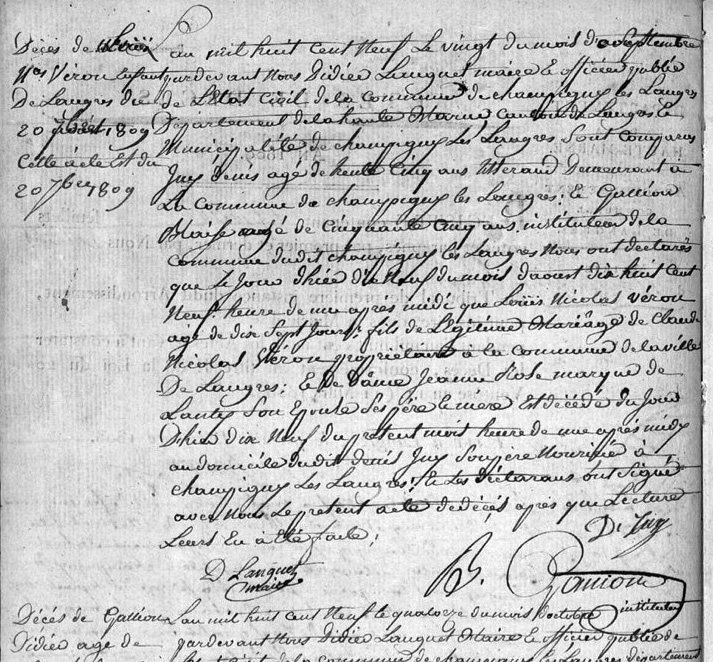 Décès de Loüis
Nas Véron Enfant
De Langres du
20 7bre 1809
Cette acte Est du
20 7bre 1809
Lan mil huit Cent Neuf Le vingt du mois de Septembre
pardevant Nous Didier Languet maire Et officier publie
de L'Etat Civil de la Commune de champigny les Langres
Département de la haute Marne Canton de Langres Le
Municipalité de champigny Les Langres Sont Comparus
Juy denis agé de trente Cinq ans Demeurant à
La Commune de champigny les Langres; Et Gallion
Blaise agé de Cinquante Cinq ans instituteur de la
Commune dudit champigny les Langres Nous ont declarés
que Le Jour dhiée dix Neuf du mois daoust dix huit Cent
Neuf heure de une apres midi que Loüis Nicolas Véron
agé de dix Sept Jours; fils de Légitime Mariâge de Claude
Nicolas Véron propriétaire à la Commune de la ville
De Langres; Et De Dâme Jeanne Rose marque de
Lantes Son Epouse Ses père Et mere Est décédé du Jour
Dhier dix Neuf du présent mois heure de une apres midy
au domicile dudit denis Juy Son pere Nouricié à
champigny Les Langres; Et Les déclarans ont Signé
avec Nous Le présent acte de décés, après que Lecture
Leurs En a Eté faite;
D. Juy
D Languet
maire
B. Gallion
instituteur
Décés de Gallion
Didier age de
Lan mil huit Cent Neuf le quatorze du mois doctobre
pardevant Nous Didier Languet Maire Et officier publie de
de la Commune de champigny les Langres département